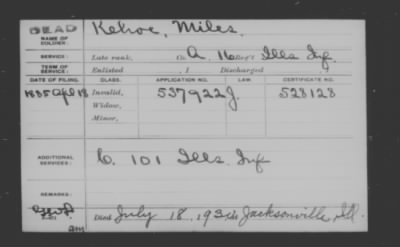 DEAD Kehoe, Miles.
NAME OF SOLDIER:
SERVICE: Late rank, Co. A, 16 Reg't Ills Inf.
TERM OF SERVICE: Enlisted , 1 Discharged , 1
DATE OF FILING. CLASS. APPLICATION NO. LAW. CERTIFICATE NO.
1885 Apl 18 Invalid, 537922 J. 523128
Widow,
Minor,
ADDITIONAL SERVICES: C. 101 Ills. Inf
REMARKS:
Died July 18, 193 at Jacksonville, Ill.